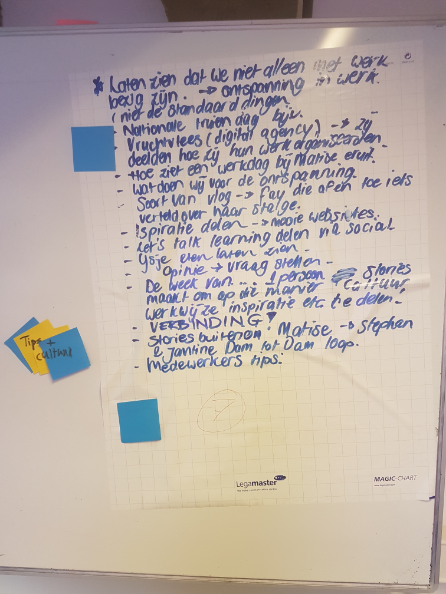 * Laten zien dat we niet alleen met werk
bezig zijn. → ontspanning in werk.
(niet de standaard dingen
- Nationale truien dag bijv.
- Vruchtvlees (digital agency) → zij
deelden hoe zij hun werk organiseerden
- Hoe ziet een werkdag bij Matise eruit.
- Wat doen wij voor de ontspanning.
- Soort van vlog → Fay die af en toe iets
verteld over haar stage.
- Ispiratie delen → mooie websites.
- Let's talk learning delen via social
- IJsje eten laten zien -
- opinie → vraag stellen -
- De week van ... 1 persoon Stories
maakt om op die manier cultuur,
werkwijze inspiratie etc te delen -
- VERBINDING!
- Stories buiten Matise → Stephan
& Jantine Dam tot Dam loop.
- Medewerkers tips:
Tips +
cultuur
Legamaster
MAGIC-CHART